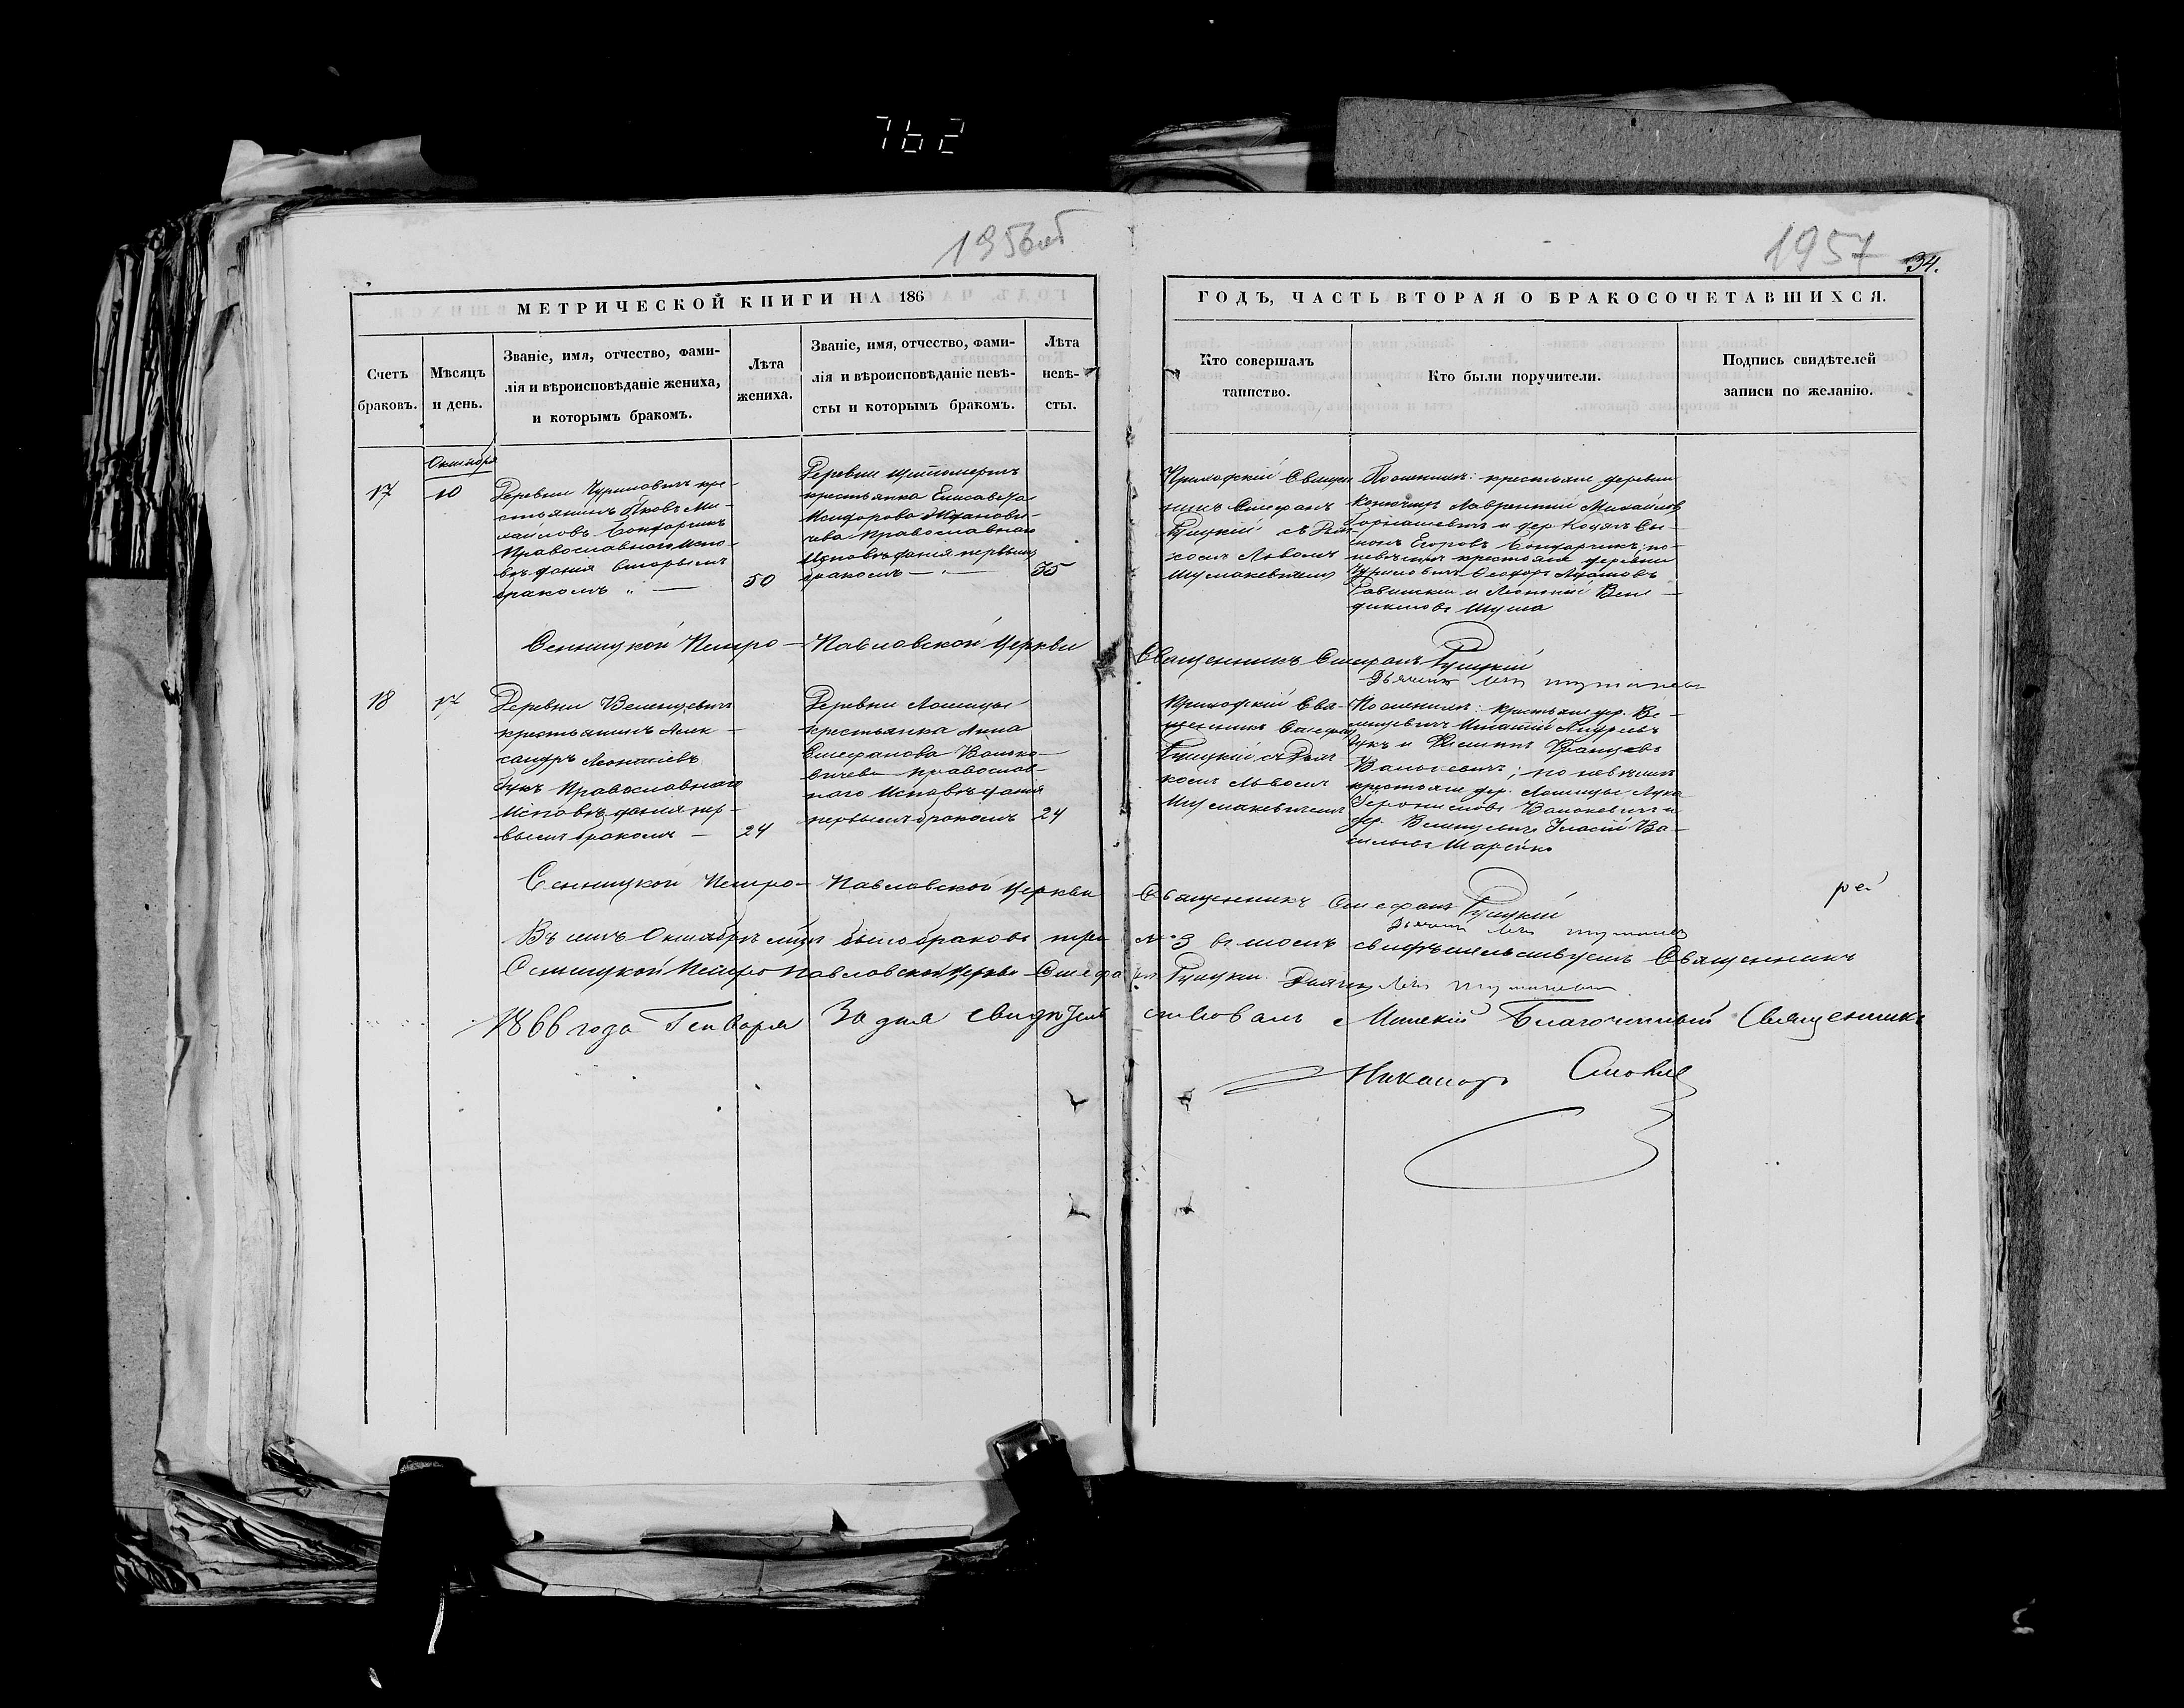 762
1956об
1957
34.
МЕТРИЧЕСКОЙ КНИГИ НА 186
ГОДЪ, ЧАСТЬ ВТОРАЯ О БРАКОСОЧЕТАВШИХСЯ.
Счетъ
браковъ.
Мѣсяцъ
и день.
Званіе, имя, отчество, фами-
лія и вѣроисповѣданіе жениха,
и которымъ бракомъ.
Лѣта
жениха.
Званіе, имя, отчество, фами-
лія и вѣроисповѣданіе невѣ-
сты и которымъ бракомъ.
Лѣта
невѣ-
сты.
Кто совершалъ
таинство.
Кто были поручители.
Подпись свидѣтелей
записи по желанію.
17
Октября
10
Деревни Чуриловичъ кре-
стьянинъ Яковъ Ми-
хайловъ Бондарчикъ
Православнаго Испо-
вѣданія вторымъ
бракомъ
50
Деревни
крестьянка Елисавета
Исидорова Жданови-
чева Православнаго
Исповѣданія первымъ
бракомъ
35
Приходскій Священ-
никъ Стефанъ
Руцкій съ Дья-
комъ Львомъ
По женихѣ: крестьяне деревни
Лаврентій Михайловъ
и дер.
монъ Егоровъ Бондарчикъ; по
невѣстѣ крестьяне деревни
Чуриловичъ Феодоръ
и Леонтій Вене-
диктовъ Шуша
Сенницкой Петро-Павловской Церкви
Священникъ Стефанъ Руцкій
Дьячекъ Левъ
18
17
Деревни Великцевичъ
крестьянинъ Алек-
сандръ Леонтіевъ
Гукъ Православнаго
Исповѣданія пер-
вымъ бракомъ
24
Деревни Лошицы
крестьянка Анна
Стефанова Валько-
вичева православ-
наго Исповѣданія
первымъ бракомъ
24
Приходскій Свя-
щенникъ Стефанъ
Руцкій съ Дья-
комъ Львомъ
По женихѣ: крестьяне др. Ве-
Игнатій Андреевъ
Гукъ и Филиппъ Францовъ
; по невѣстѣ
крестьяне дер. Лошицы Лука
и
дер. Ва-
сильевъ Шарейко
Сенницкой Петро-Павловской Церкви
Священникъ Стефанъ Руцкій
Дьячекъ Левъ
рей
Въ семъ Октябрѣ мцѣ было браковъ три № 3 въ томъ свидѣтельствуемъ Священникъ
Сенницкой Петро Павловской Церкви Стефанъ Руцкій Дьячекъ Левъ
1866 года Генваря 30 дня свидѣтельствовалъ Минскій Благочинный Священникъ
Никаноръ